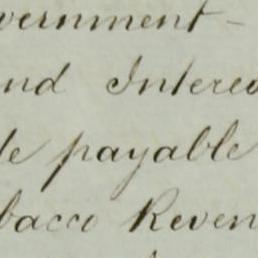 vernment -
nd Intere
le payable
bacco Reven